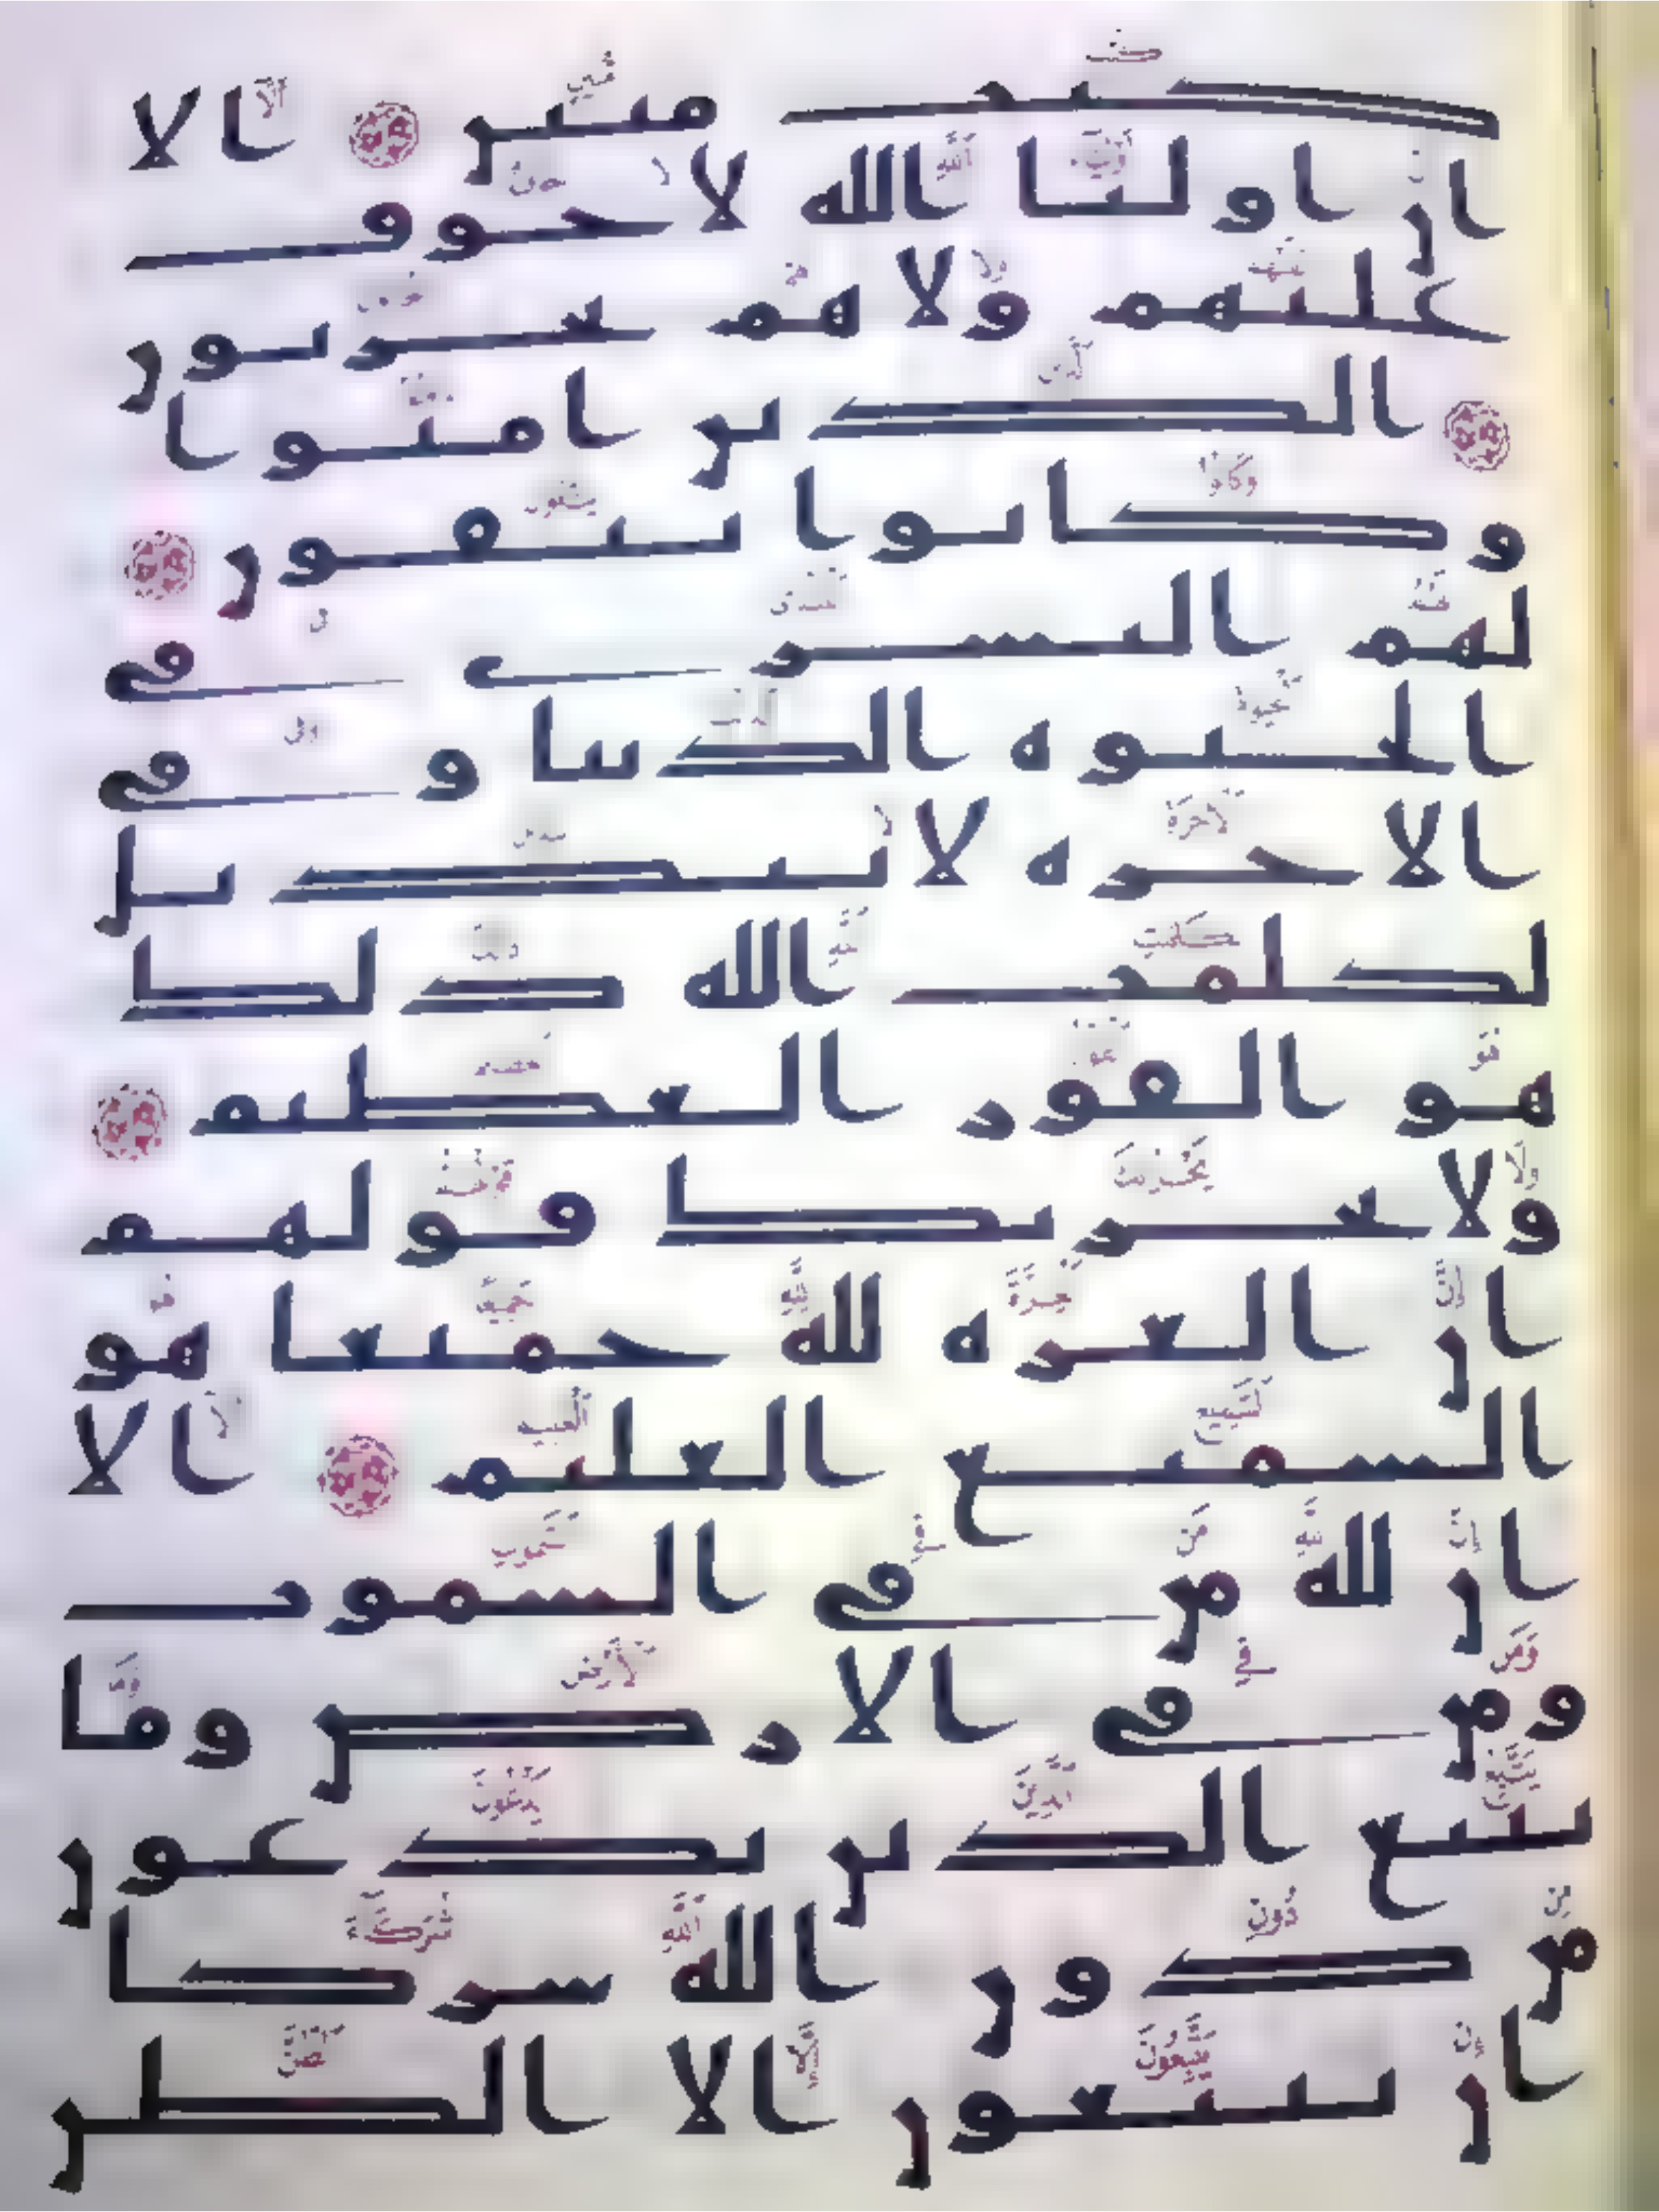 كتب مبين ۝ الا
ان اوليا الله لا خوف
عليهم ولا هم يحزنون
۝ الذين امنوا
وكانوا يتقون ۝
لهم البشرى في
الحيوة الدنيا وفي
الاخرة لا تبديل
لكلمت الله ذلك
هو الفوز العظيم ۝
ولا يحزنك قولهم
ان العزة لله جميعا هو
السميع العليم ۝ الا
ان لله من في السموت
ومن في الارض وما
يتبع الذين يدعون
من دون الله شركا
ان يتبعون الا الظن